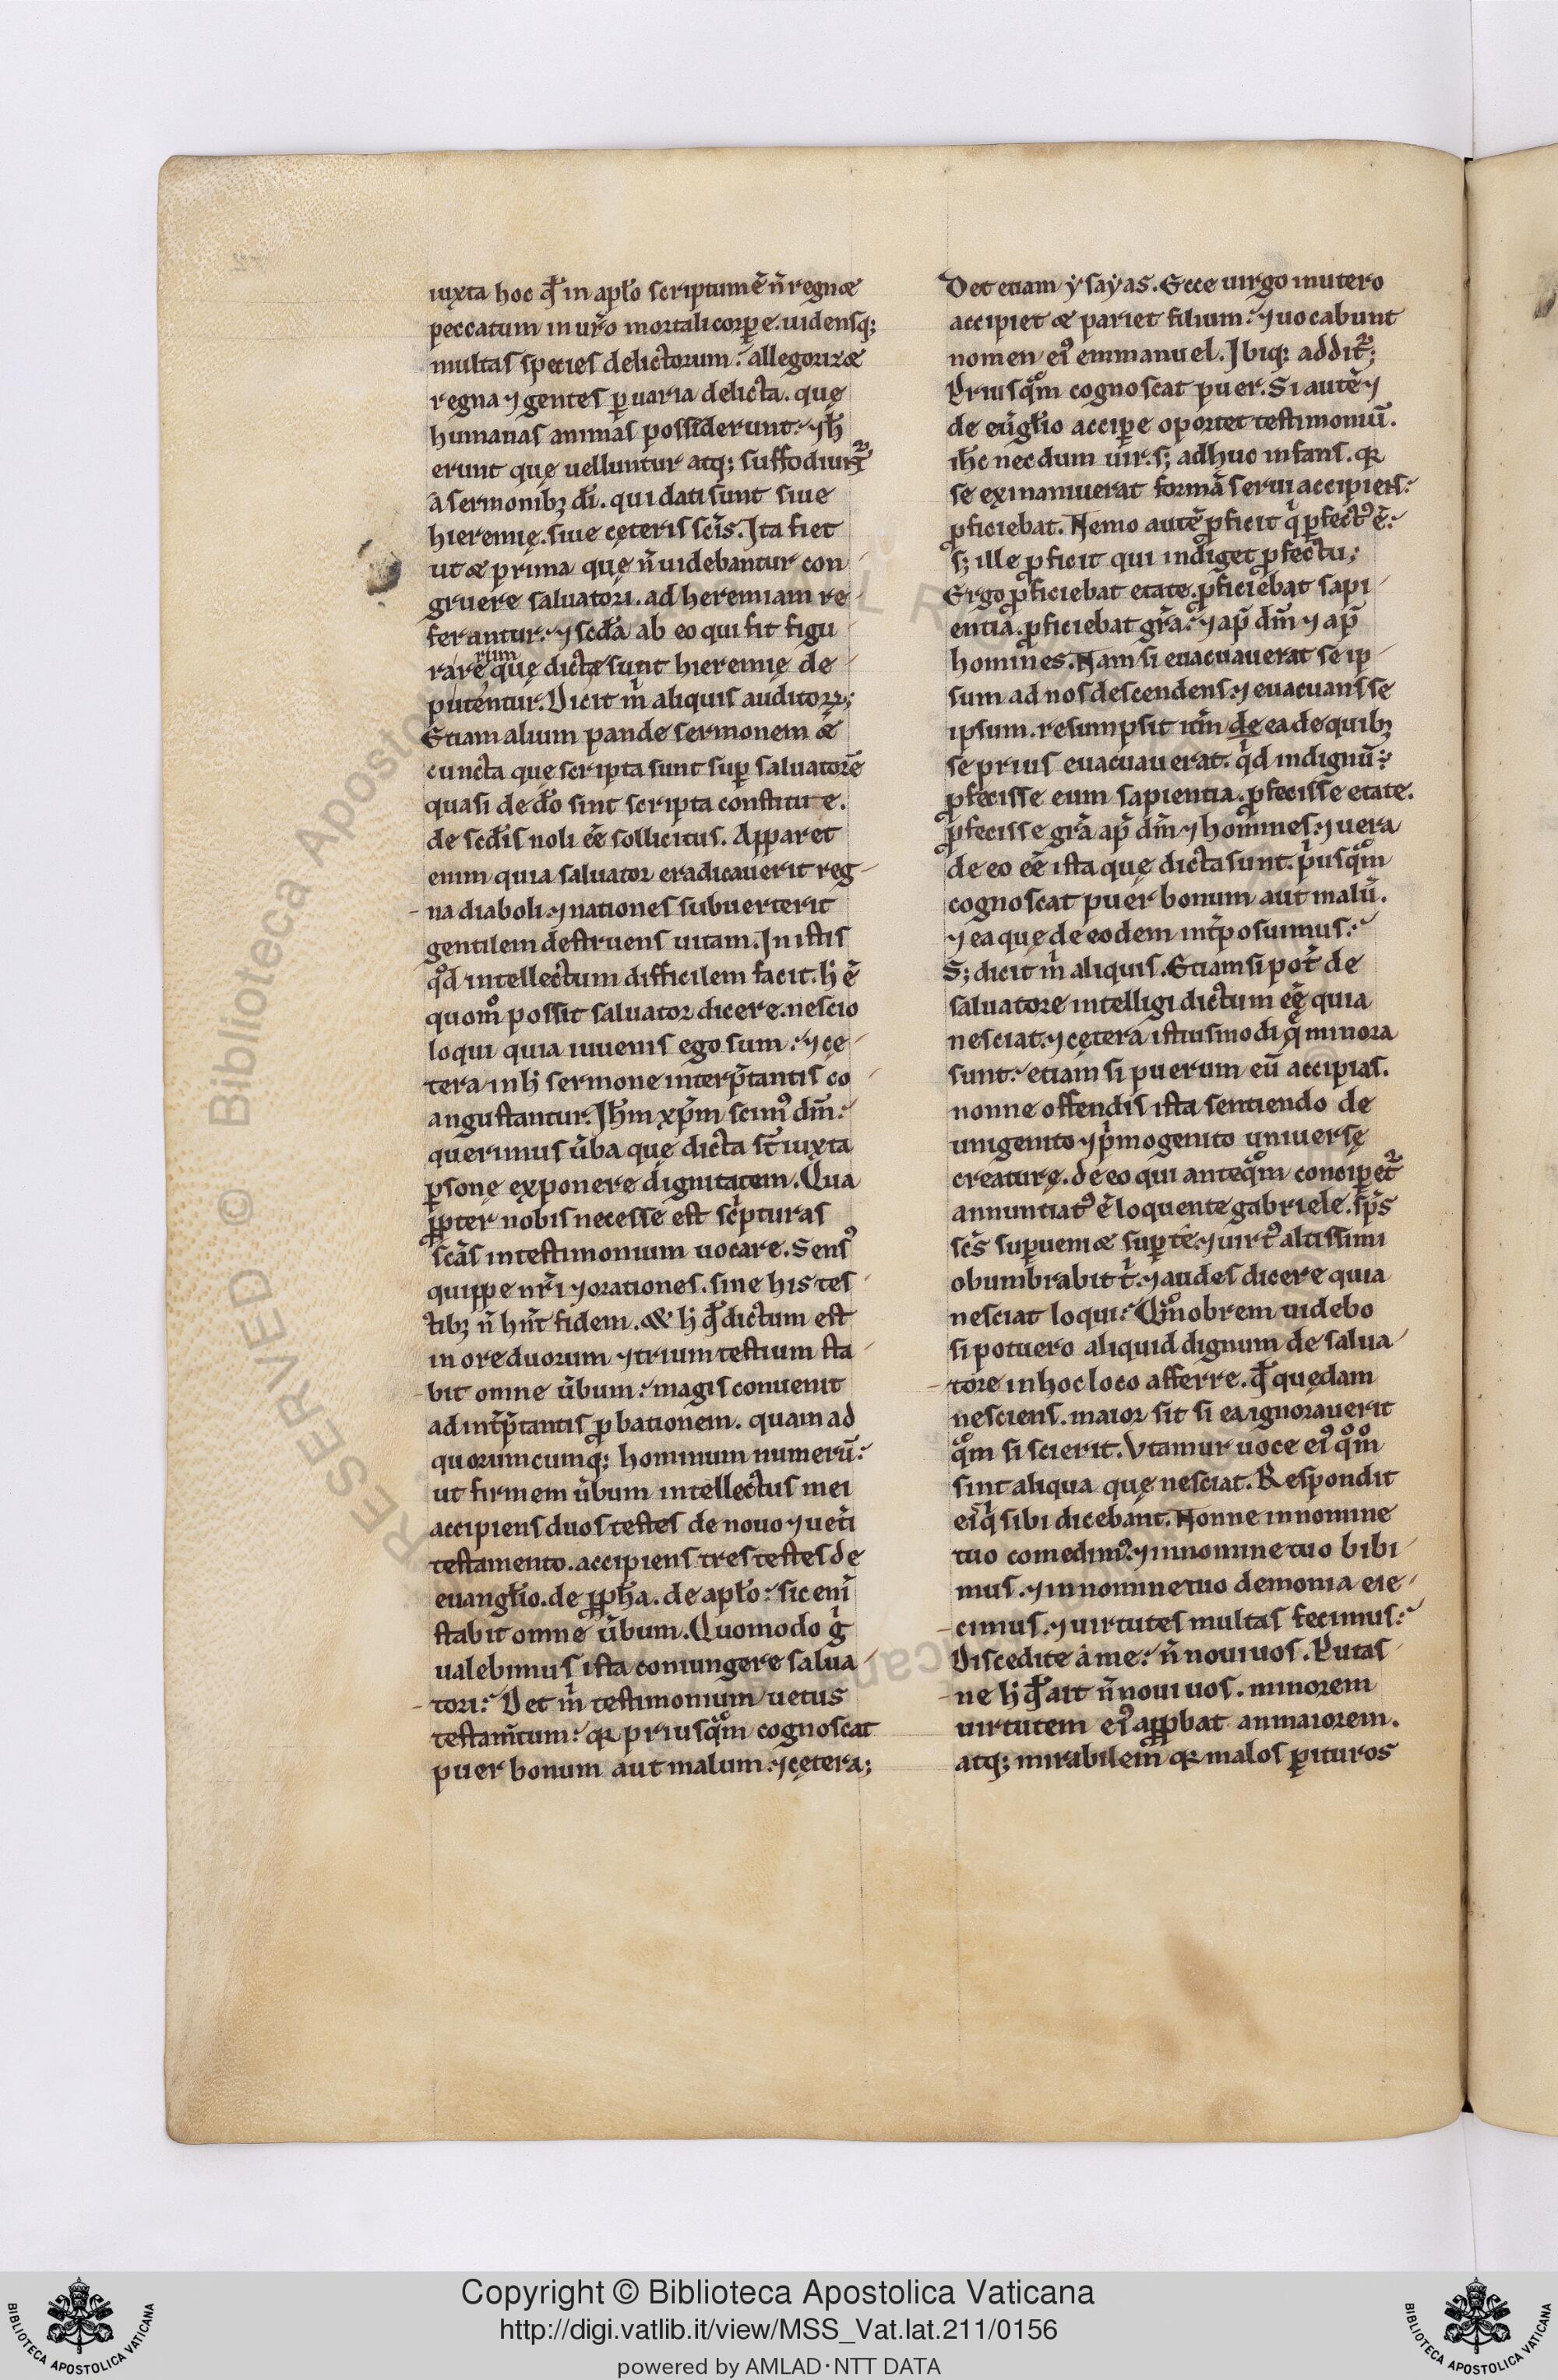 iuxta hoc qđ in apło scriptum ē n̄ regnæ
peccatum in ur̄o mortali corpꝑe. uidensq;
multas species delictorum. allegorizæ
regna ⁊ gentes ꝑ uaria delicta. quę
humanas animas possiderunt. ⁊ h̄
erunt quę uelluntur atq; suffodiunt᷑
a sermonibꝫ dī. qui dati sunt siue
hieremię. siue cęteris scīs. Ita fiet
ut æ prima quę n̄ uidebantur con
gruere saluatori. ad heremiam re
ferantur. ⁊ scđa ab eo qui fit figu
rarerum quę dicta sunt hieremię de
putentur. Dicit m̄ aliquis auditoꝝ;
Etiam alium pande sermonem æ
cuncta que scripta sunt suꝑ saluatorē
quasi de đo sint scripta constitue.
de scđis noli eē sollicitus. Apparet
enim quia saluator eradicauerit reg
na diaboli. ⁊ nationes subuerterit
gentilem destruens uitam. In istis
qd̊ intellectum difficilem facit. h̄ ē
quom̊ possit saluator dicere. nescio
loqui quia iuuenis ego sum. ⁊ cę
tera in h̄ sermone interp̄tantis co
angustantur. Ihm̄ xp̄m scimꝰ dm̄.
querimus ūba quę dicta st̄ iuxta
ꝑsonę exponere dignitatem. Qua
ꝓpter nobis necesse est scͥpturas
scās in testimonium uocare. Sensꝰ
quippe nr̄i ⁊ orationes. sine his tes
tibꝫ n̄ hn̄t fidem. & h̄ qđ dictum est
in ore duorum ⁊ trium testium sta
bit omne ūbum. magis conuenit
ad int̄p̄tantis ꝓbationem. quam ad
quorumcumq; hominum numerū.
ut firmem ūbum intellectus mei
accipiens duos testes de nouo ⁊ uet̄i
testamento. accipiens tres testes de
euanglio. de ꝓph̄a. de apło. sic eni̅
stabit omne ūbum. Quomodo gͥ
ualebimus ista coniungere salua
tori. Det m̄ testimonium uetus
testam̄tum. qꝛ priusqͦm cognoscat
puer bonum aut malum. ⁊ cętera;
Det etiam ẏsaẏas. Ecce uirgo in utero
accipiet æ pariet filium. ⁊ uocabunt
nomen eiꝰ emmanuel. Ibiq; addit᷑;
Priusqͦm cognoscat puer. Si autē ⁊
de eūglio accipꝑe oportet testimoniū.
ih̄c necdum uir. s; adhuc infans. qꝛ
se exinaniuerat formā serui accipiens.
ꝓficiebat. Nemo autē ꝓficit qͥ ꝑfectꝰ ē.
s; ille ꝓficit qui indiget ꝓfectu;
Ergo ꝓficiebat etate. ꝓficiebat sapi
entia. ꝓficiebat gr̄a. ⁊ ap̄ dm̄ ⁊ ap̄
homines. Nam si euacuauerat se ip
sum ad nos descendens. ⁊ euacuans se
ipsum. resumpsit itm̄ de ea de quibꝫ
se prius euacuauerat. qͥd indignū.
ꝓfecisse eum sapientia. ꝓfecisse etate.
ꝓfecisse gr̄a ap̄ dm̄ ⁊ homines. ⁊ uera
de eo eē ista quę dicta sunt. pͥusqͦm
cognoscat puer bonum aut malū.
⁊ ea quę de eodem int̄posuimus.
S; dicit m̄ aliquis. Etiam si pot̄ de
saluatore intelligi dictum eē quia
nesciat. ⁊ cętera istiusmodi qͣ minora
sunt. etiam si puerum eū accipias.
nonne offendis ista sentiendo de
unigenito ⁊ pͥmogenito uniuersę
creaturę. de eo qui anteqͦm conciꝑet᷑
annuntiatꝰ ē loquente gabriele. sp̄s
sc̄s suꝑueniæ suꝑ tē. ⁊ uirtꝰ altissimi
obumbrabit tͥ. ⁊ audes dicere quia
nesciat loqui. Qm̊obrem uidebo
si potuero aliquid dignum de salua
tore in hoc loco afferre. qđ quędam
nesciens. maior sit si ea ignorauerit
qͦm si scierit. Vtamur uoce eiꝰ qͦmͦ
sint aliqua quę nesciat. Respondit
eiꝰ qͥ sibi dicebant. Nonne in nomine
tuo comedimꝰ. ⁊ in nomine tuo bibi
mus. ⁊ in nomine tuo demonia eie
cimus. ⁊ uirtutes multas fecimus.
Discedite a me. n̄ noui uos. Putas
ne h̄ qđ ait n̄ noui uos. minorem
uirtutem eiꝰ apꝓbat an maiorem.
atq; mirabilem qꝛ malos ꝑituros
Copyright © Biblioteca Apostolica Vaticana
http://digi.vatlib.it/view/MSS_Vat.lat.211/0156
powered by AMLAD·NTT DATA
BIBLIOTECA APOSTOLICA VATICANA
BIBLIOTECA APOSTOLICA VATICANA